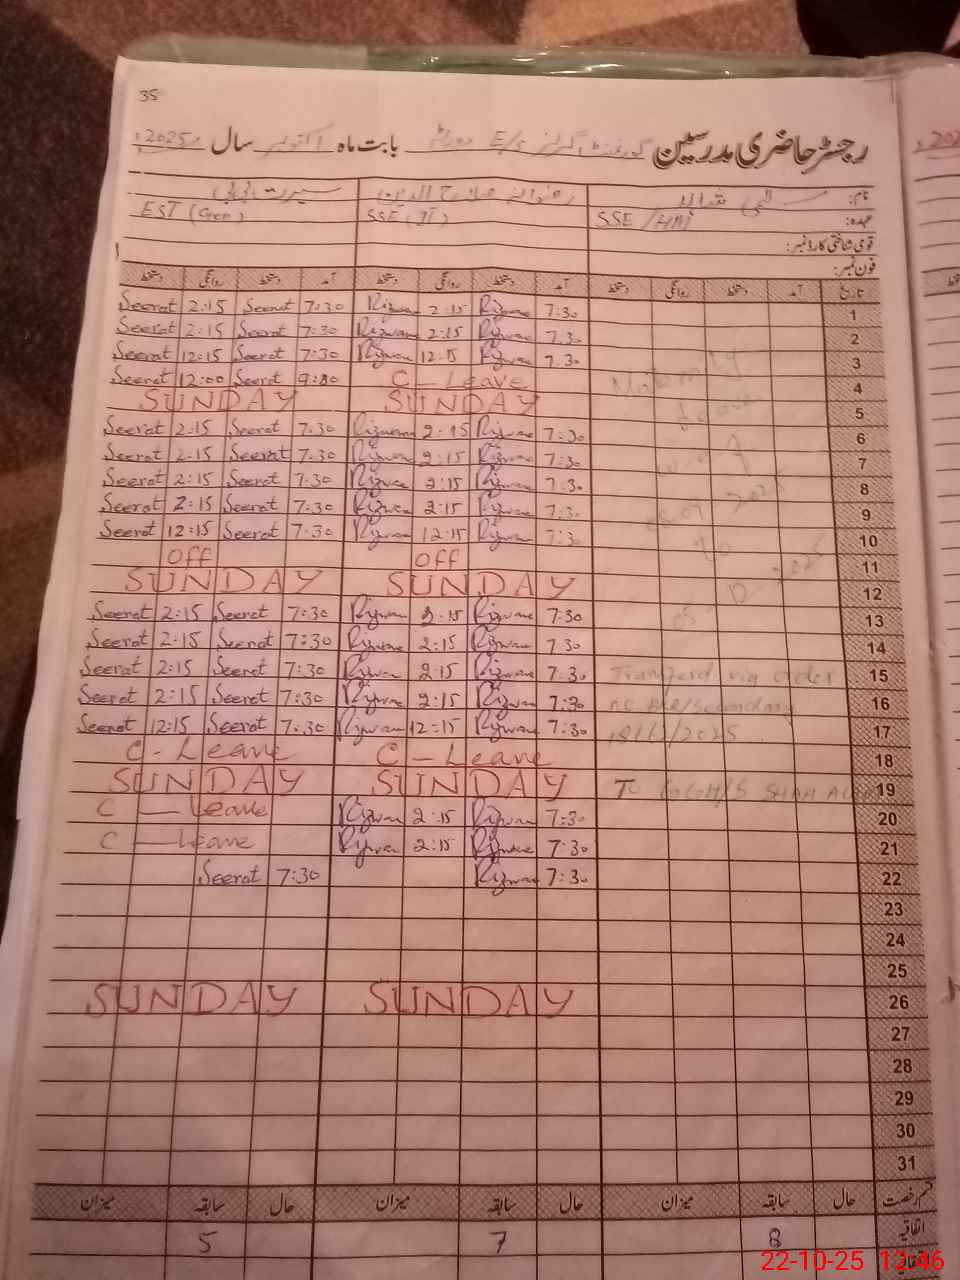 35
رجسٹر حاضری مدرسین گورنمنٹ گرلز E/S بابت ماہ اکتوبر سال 2025ء
نام: سیرت بی بی
عہدہ: SSE / SSE (IT) EST (Gen)
قومی شناختی کارڈ نمبر:
فون نمبر:
تاریخ آمد دستخط روانگی دستخط آمد دستخط روانگی دستخط آمد دستخط روانگی دستخط
Seerat 2:15 Seerat 7:30 Rizwana 2:15 Rizwana 7:30 1
Seerat 2:15 Seerat 7:30 Rizwana 2:15 Rizwana 7:30 2
Seerat 12:15 Seerat 7:30 Rizwana 12:15 Rizwana 7:30 3
Seerat 12:00 Seerat 9:00 C-Leave Maternity 4
SUNDAY SUNDAY leave 5
Seerat 2:15 Seerat 7:30 Rizwana 2:15 Rizwana 7:30 6
Seerat 2:15 Seerat 7:30 Rizwana 2:15 Rizwana 7:30 w.e.f 7
Seerat 2:15 Seerat 7:30 Rizwana 2:15 Rizwana 7:30 8
Seerat 2:15 Seerat 7:30 Rizwana 2:15 Rizwana 7:30 08-09-2025 9
Seerat 12:15 Seerat 7:30 Rizwana 12:15 Rizwana 7:30 To 10
OFF OFF 11
SUNDAY SUNDAY 05-12-2025 12
Seerat 2:15 Seerat 7:30 Rizwana 2:15 Rizwana 7:30 13
Seerat 2:15 Seerat 7:30 Rizwana 2:15 Rizwana 7:30 14
Seerat 2:15 Seerat 7:30 Rizwana 2:15 Rizwana 7:30 Transferd via order 15
Seerat 2:15 Seerat 7:30 Rizwana 2:15 Rizwana 7:30 no /Secondary 16
Seerat 12:15 Seerat 7:30 Rizwana 12:15 Rizwana 7:30 /2025 17
C-Leave C-Leave 18
SUNDAY SUNDAY To GGH/S SHAH 19
C-Leave Rizwana 2:15 Rizwana 7:30 20
C-Leave Rizwana 2:15 Rizwana 7:30 21
Seerat 7:30 Rizwana 7:30 22
23
24
25
SUNDAY SUNDAY 26
27
28
29
30
31
قسم رخصت حال سابقہ میزان حال سابقہ میزان حال سابقہ میزان
اتفاقیہ 8 7 5
22-10-25 12:46